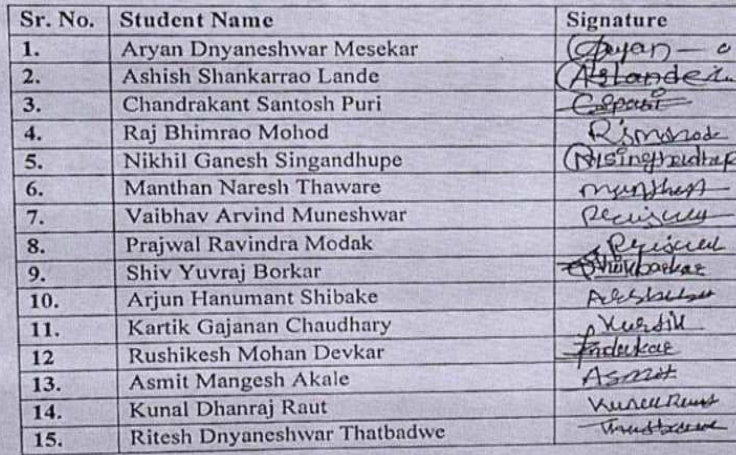 Sr. No. Student Name Signature
1. Aryan Dnyaneshwar Mesekar Aryan
2. Ashish Shankarrao Lande ASLande
3. Chandrakant Santosh Puri
4. Raj Bhimrao Mohod
5. Nikhil Ganesh Singandhupe
6. Manthan Naresh Thaware
7. Vaibhav Arvind Muneshwar
8. Prajwal Ravindra Modak
9. Shiv Yuvraj Borkar
10. Arjun Hanumant Shibake
11. Kartik Gajanan Chaudhary
12 Rushikesh Mohan Devkar
13. Asmit Mangesh Akale Asmit
14. Kunal Dhanraj Raut
15. Ritesh Dnyaneshwar Thatbadwe